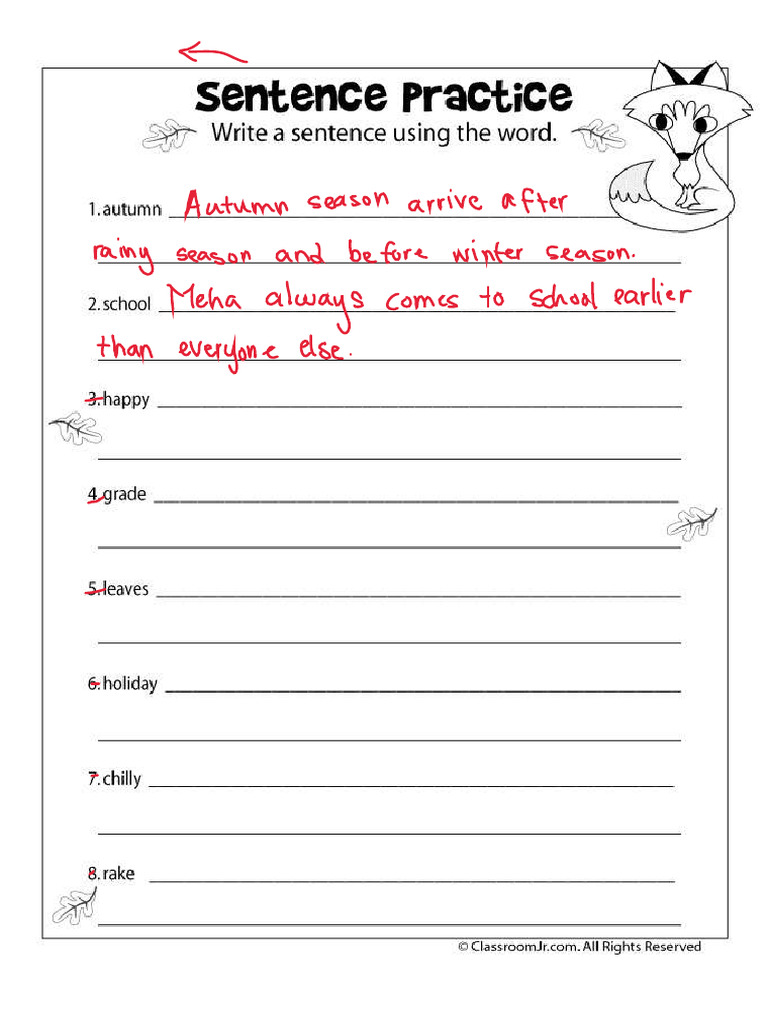 Sentence Practice
Write a sentence using the word.
1. autumn Autumn season arrive after
rainy season and before winter season.
2. school Meha always comes to school earlier
than everyone else.
3. happy
4. grade
5. leaves
6. holiday
7. chilly
8. rake
© ClassroomJr.com. All Rights Reserved